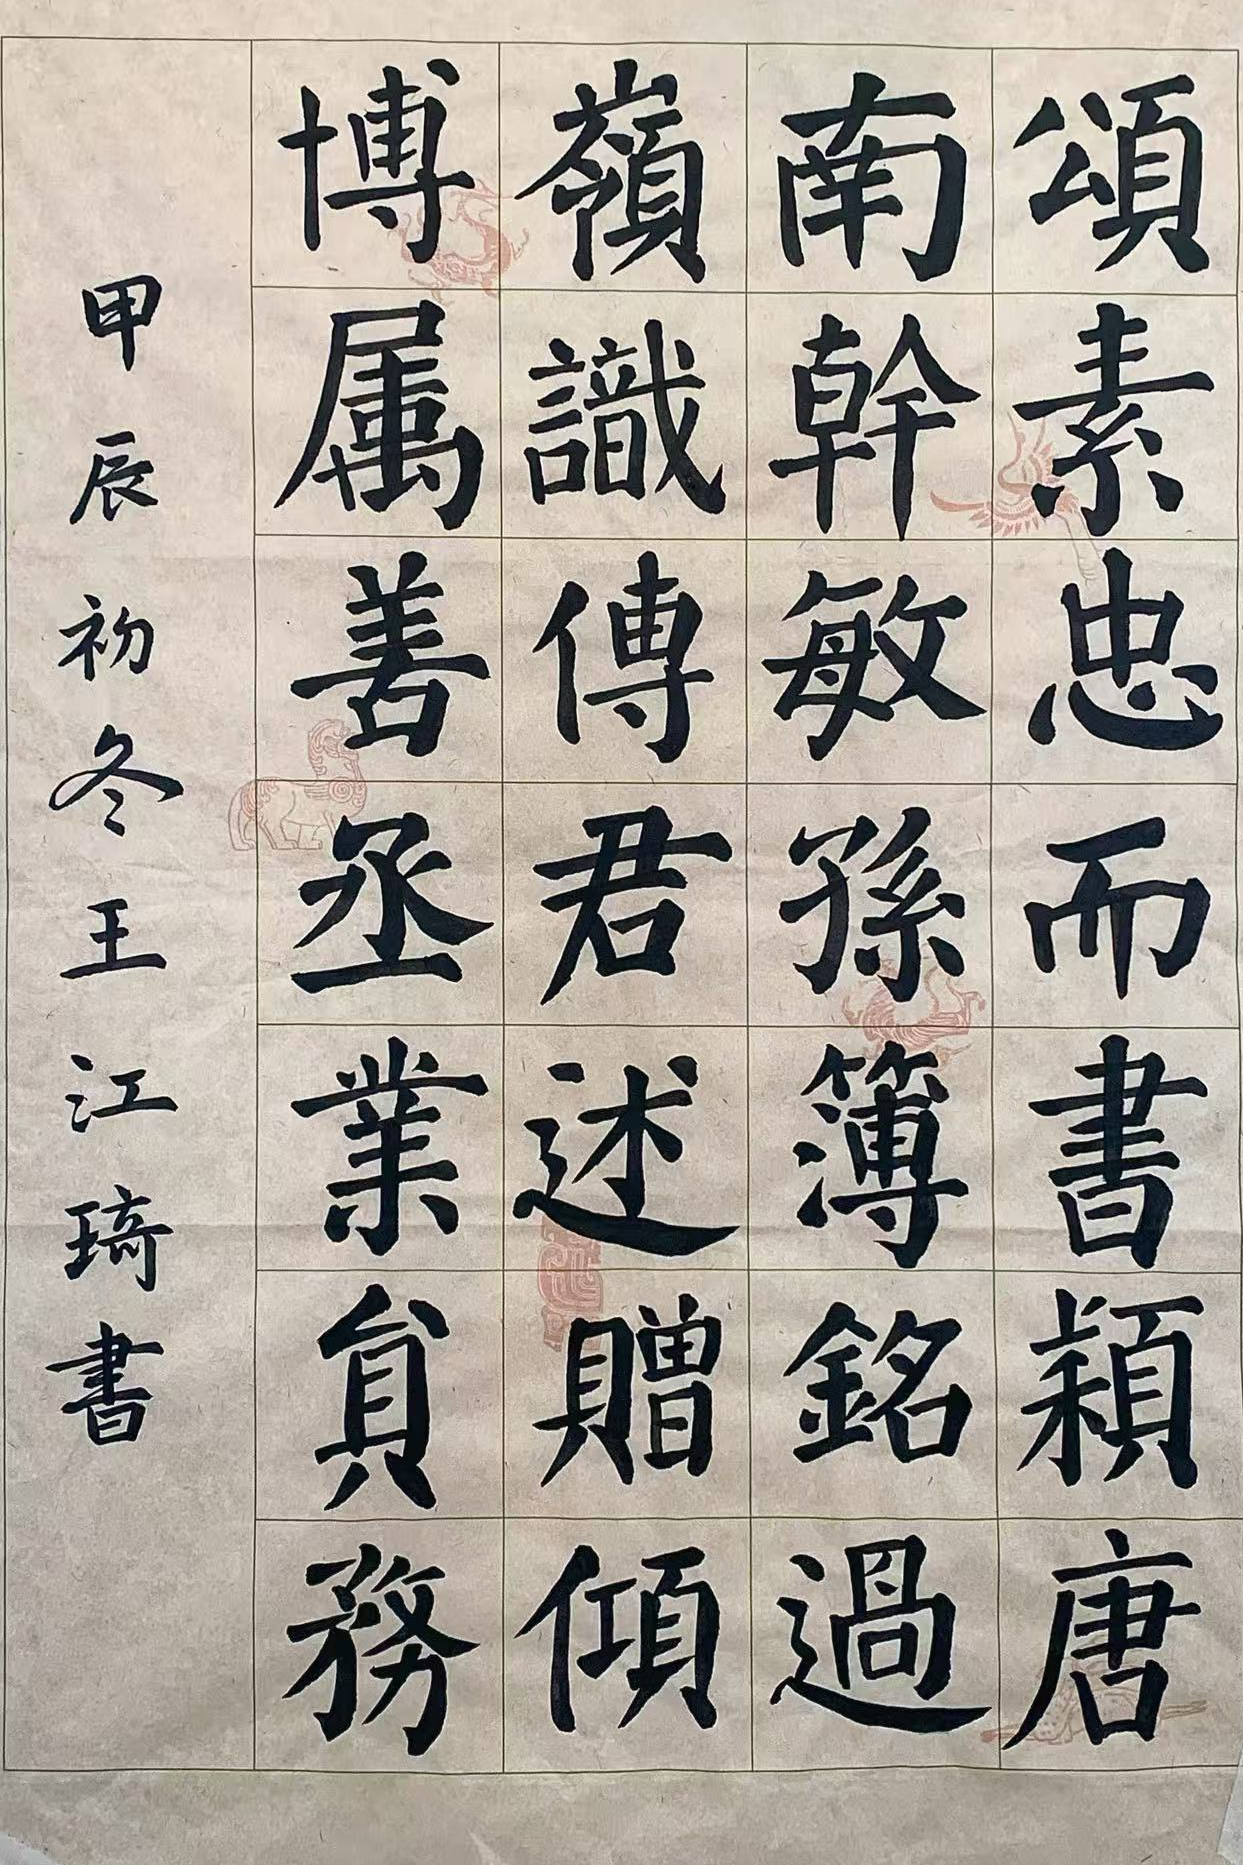 頌素忠而書穎唐
南幹敏孫簿銘過
嶺識傳君述贈傾
博属善丞業貟務
甲辰初冬王江琦書